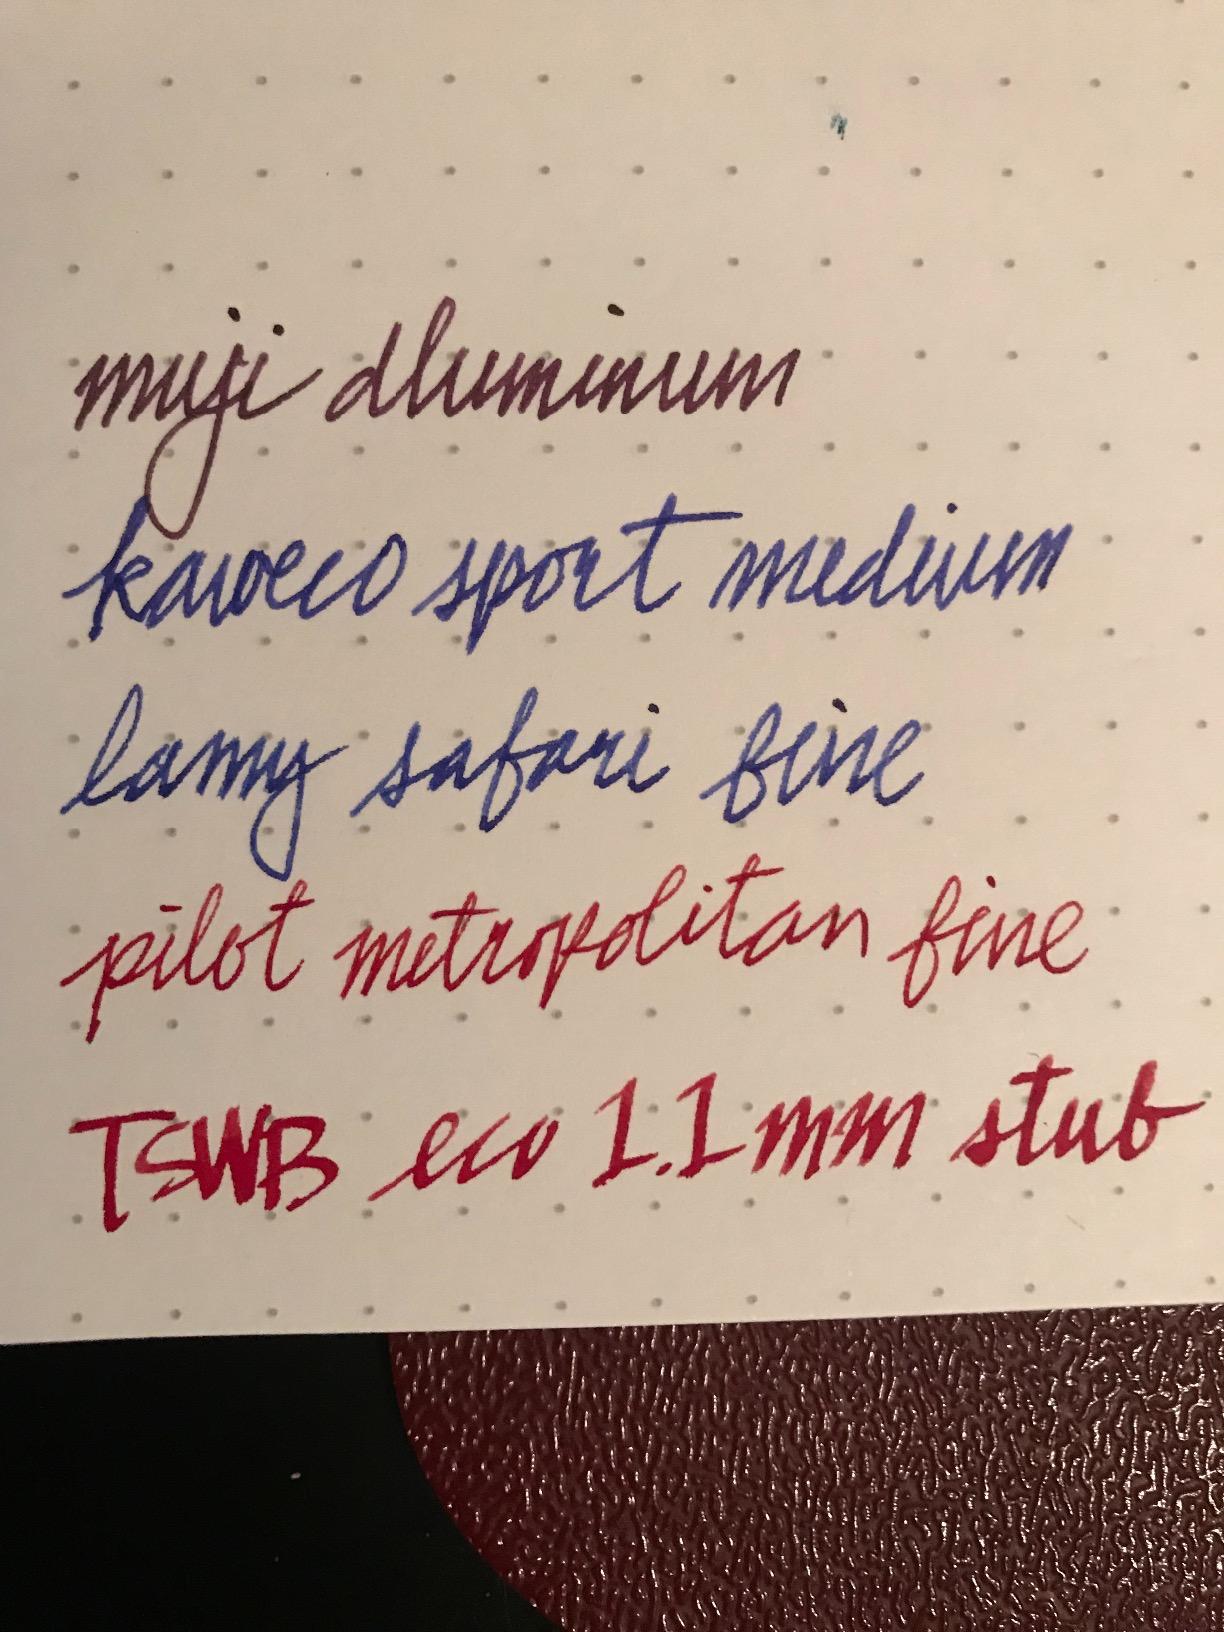 muji aluminum
kaweco sport medium
lamy safari fine
pilot metropolitan fine
TSWB eco 1.1mm stub